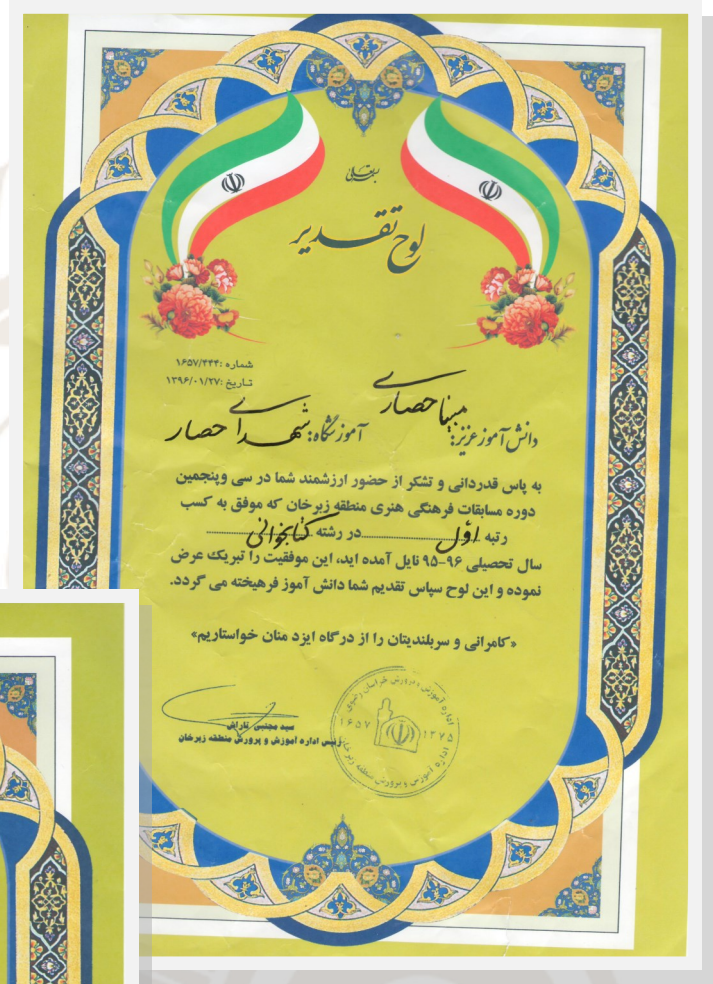 بسمه تعالی
لوح تقدیر
شماره :۱۶۵۷/۴۴۴
تاریخ :۱۳۹۶/۰۱/۲۷
دانش آموز عزیز: مبینا حصاری آموزشگاه: شهدای حصار
به پاس قدردانی و تشکر از حضور ارزشمند شما در سی وپنجمین
دوره مسابقات فرهنگی هنری منطقه زبرخان که موفق به کسب
رتبه اول در رشته کتابخوانی
سال تحصیلی ۹۶-۹۵ نایل آمده اید، این موفقیت را تبریک عرض
نموده و این لوح سپاس تقدیم شما دانش آموز فرهیخته می گردد.
«کامرانی و سربلندیتان را از درگاه ایزد منان خواستاریم»
سید مجتبی تاراش
رئیس اداره آموزش و پرورش منطقه زبرخان
اداره آموزش و پرورش خراسان رضوی
۱۶۵۷ ۱۲۷۵
اداره آموزش و پرورش منطقه زبرخان